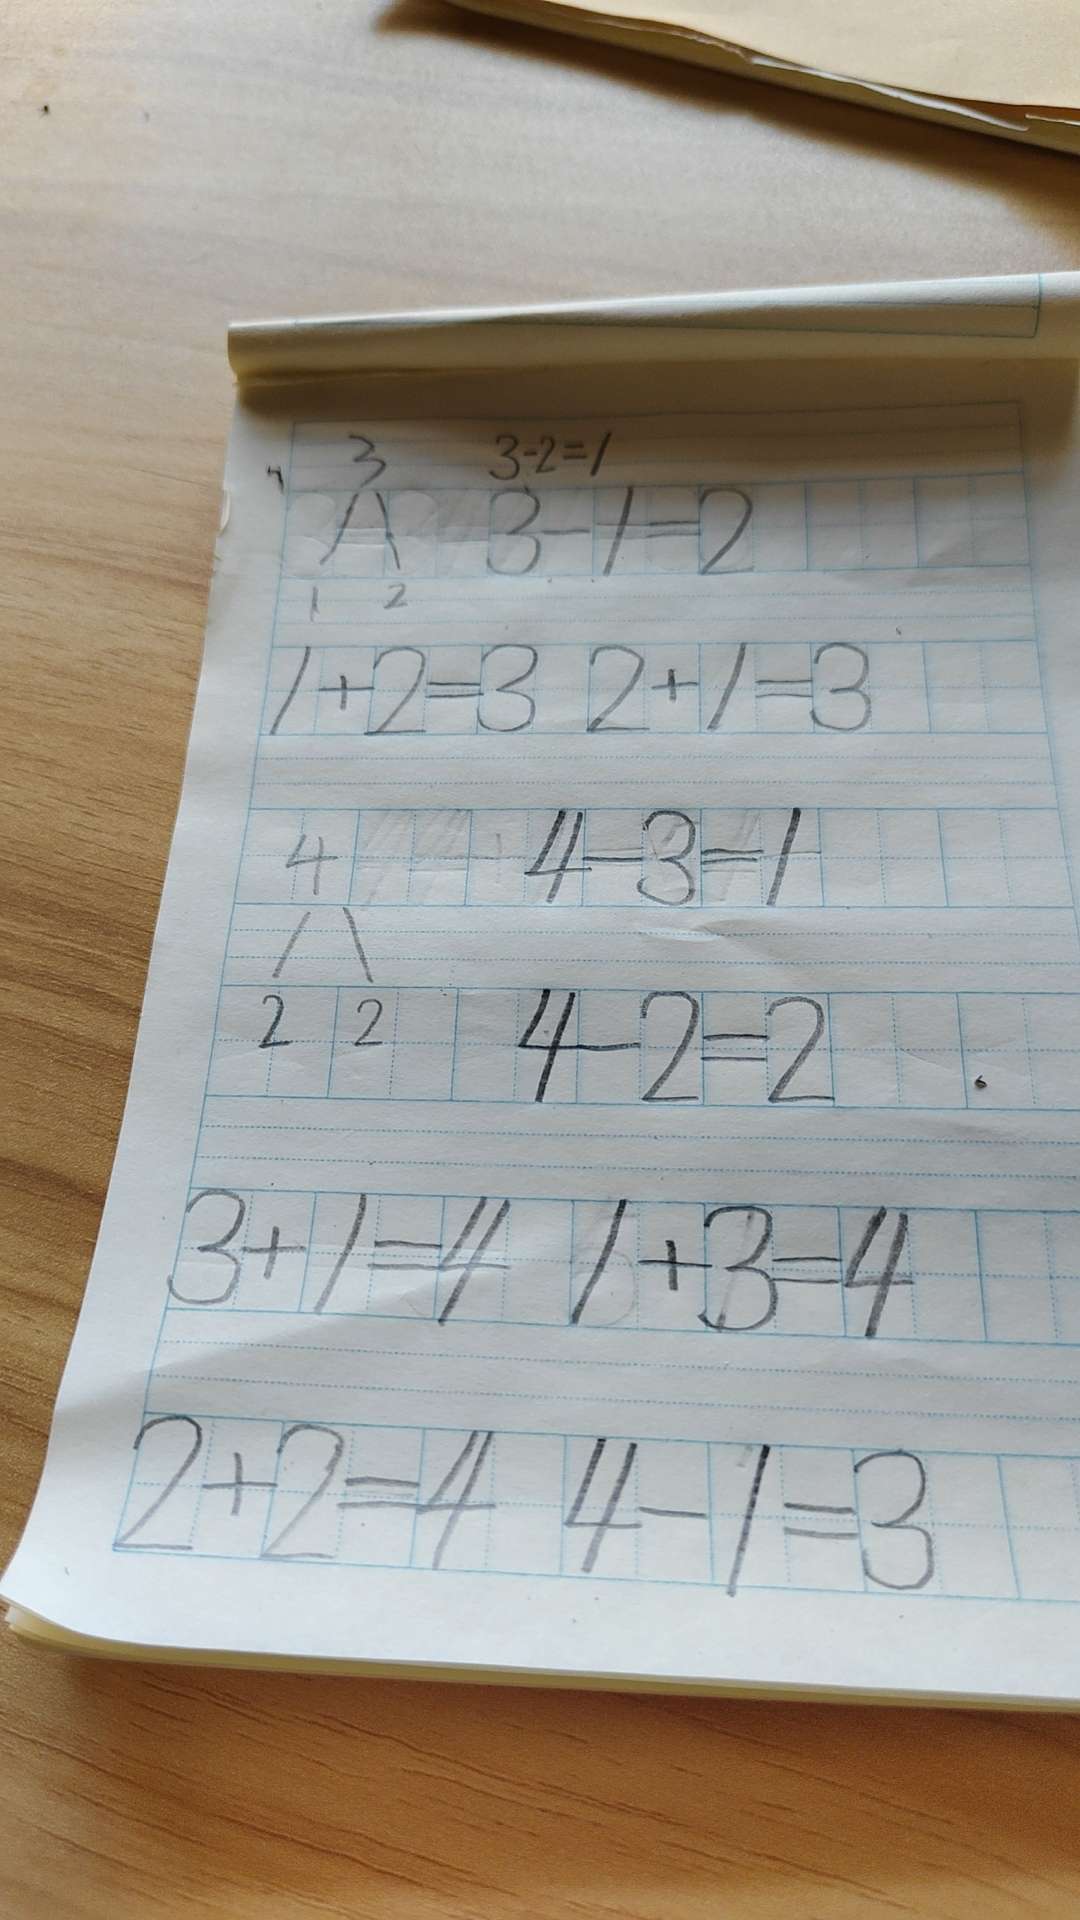 3 3-2=1
3-1=2
1 2
1+2=3 2+1=3
4 4-3=1
2 2 4-2=2
3+1=4 1+3=4
2+2=4 4-1=3